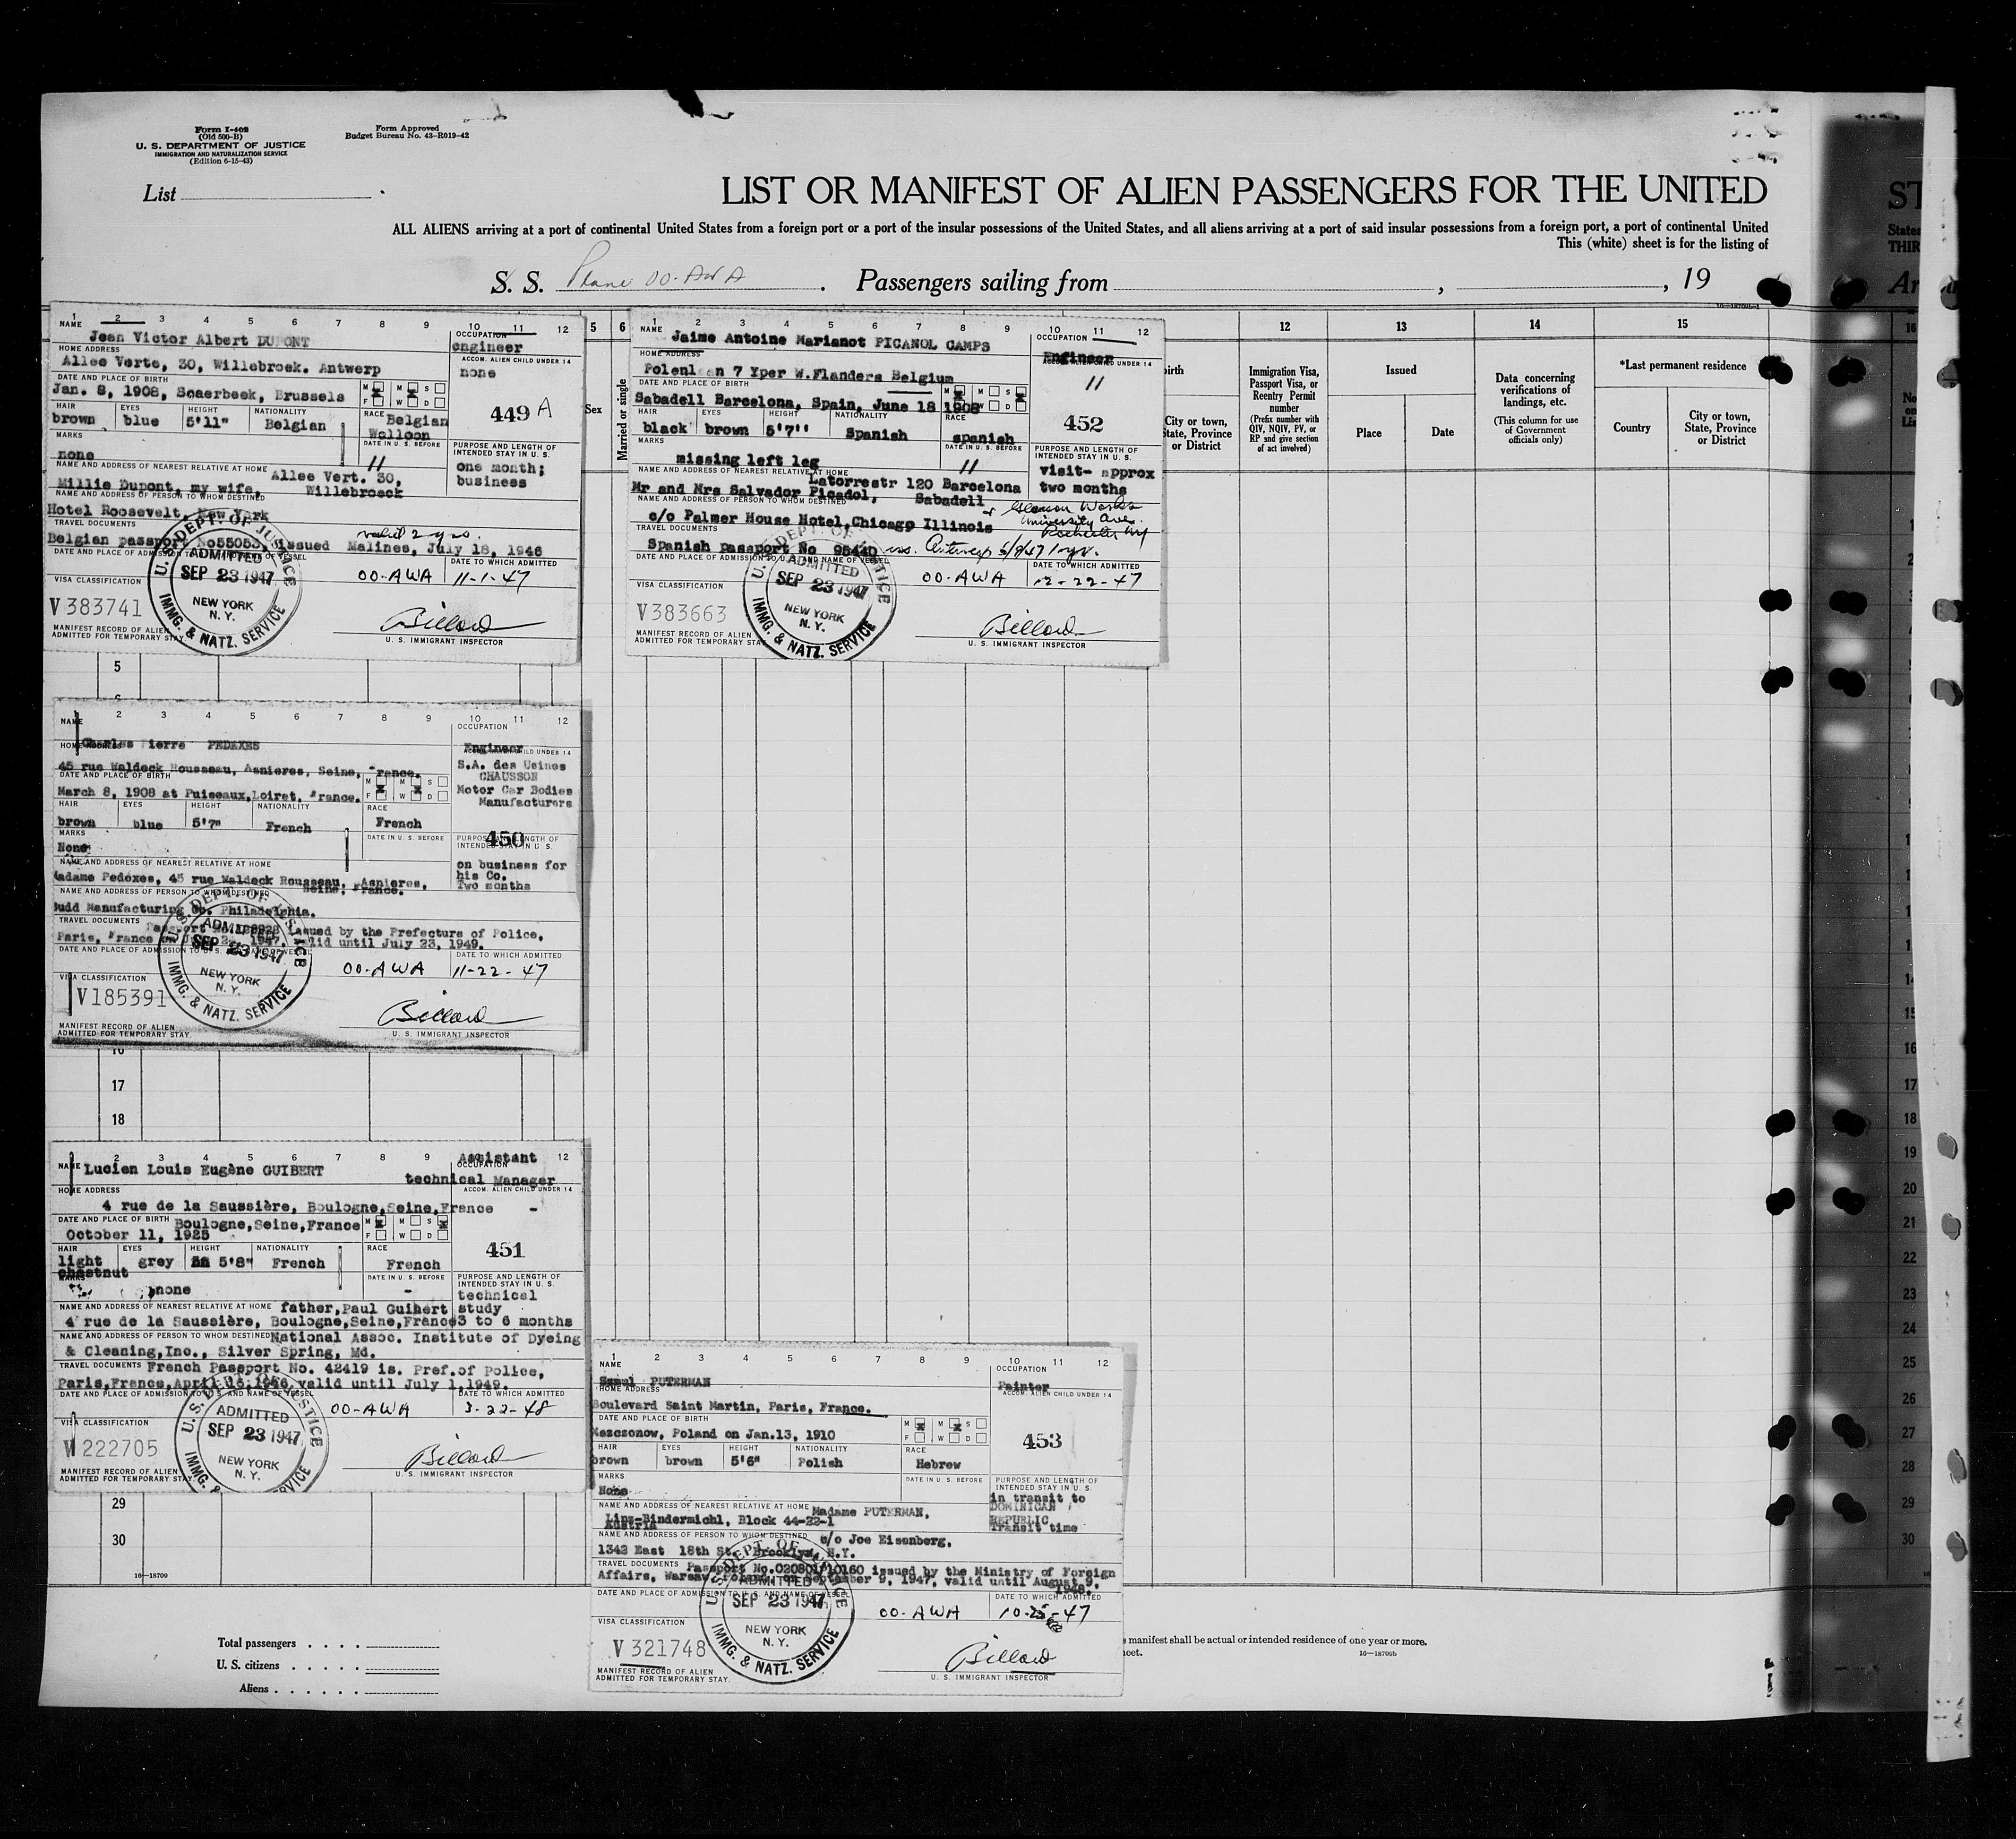 Form I-402
(Old 500-B)
U. S. DEPARTMENT OF JUSTICE
IMMIGRATION AND NATURALIZATION SERVICE
(Edition 6-15-43)
Form Approved
Budget Bureau No. 43-R019-42
List
LIST OR MANIFEST OF ALIEN PASSENGERS FOR THE UNITED
ST
ALL ALIENS arriving at a port of continental United States from a foreign port or a port of the insular possessions of the United States, and all aliens arriving at a port of said insular possessions from a foreign port, a port of continental United
States
This (white) sheet is for the listing of
THIR
S. S. Plane OO-AWA . Passengers sailing from , , 19
16—18709b-1
1 2 3 4 5 6 7 8 9 10 11 12
NAME
Jean Victor Albert DUPONT
OCCUPATION
engineer
HOME ADDRESS
Allee Verte, 30, Willebroek. Antwerp
ACCOM. ALIEN CHILD UNDER 14
none
DATE AND PLACE OF BIRTH
Jan. 8, 1908, Scaerbeek, Brussels
M M S
F W D
449 A
HAIR EYES HEIGHT NATIONALITY RACE
brown blue 5'11" Belgian Belgian
Walloon
MARKS
none
DATE IN U. S. BEFORE
11
PURPOSE AND LENGTH OF
INTENDED STAY IN U. S.
one month;
business
NAME AND ADDRESS OF NEAREST RELATIVE AT HOME Allee Vert. 30,
Millie Dupont, my wife, Willebroeck
NAME AND ADDRESS OF PERSON TO WHOM DESTINED
Hotel Roosevelt, New York
TRAVEL DOCUMENTS
valid 2 yrs.
Belgian passport issued Malines, July 18, 1946
DATE AND PLACE OF ADMISSION TO U. S. AND NAME OF VESSEL
DATE TO WHICH ADMITTED
OO-AWA 11-1-47
VISA CLASSIFICATION
V 383741
U. S. DEPT. OF JUSTICE
ADMITTED
SEP 23 1947
NEW YORK
N. Y.
IMMG. & NATZ. SERVICE
Billard
MANIFEST RECORD OF ALIEN
ADMITTED FOR TEMPORARY STAY
U. S. IMMIGRANT INSPECTOR
1 2 3 4 5 6 7 8 9 10 11 12
NAME
Jaime Antoine Marianot PICANOL CAMPS
HOME ADDRESS
Engineer
ACCOM. ALIEN CHILD UNDER 14
7 Yper W.Flanders Belgium
11
DATE AND PLACE OF BIRTH
Sabadell Barcelona, Spain, June 18 1908
M M S
F W D
452
HAIR EYES HEIGHT NATIONALITY RACE
black brown 5'7'' Spanish spanish
MARKS
missing left leg
DATE IN U. S. BEFORE
11
PURPOSE AND LENGTH OF
INTENDED STAY IN U. S.
visit- approx
two months
NAME AND ADDRESS OF NEAREST RELATIVE AT HOME
Latorrestr 120 Barcelona
Mr and Mrs Salvador Picadol, Sabadell
NAME AND ADDRESS OF PERSON TO WHOM DESTINED
c/o Palmer House Hotel,Chicago Illinois
+ Gleason Works
University Ave.
Rochester NY
TRAVEL DOCUMENTS
Spanish passport No 95440 iss. Antwerp 6/9/47 1 yr.
DATE AND PLACE OF ADMISSION TO U. S. AND NAME OF VESSEL
DATE TO WHICH ADMITTED
OO-AWA 12-22-47
VISA CLASSIFICATION
V383663
U. S. DEPT. OF JUSTICE
ADMITTED
SEP 23 1947
NEW YORK
N. Y.
IMMG. & NATZ. SERVICE
Billard
MANIFEST RECORD OF ALIEN
ADMITTED FOR TEMPORARY STAY
U. S. IMMIGRANT INSPECTOR
5 6 12 13 14 15 16
Sex
Married or single
City or town,
State, Province
or District
Immigration Visa,
Passport Visa, or
Reentry Permit
number
(Prefix number with
QIV, NQIV, PV, or
RP and give section
of act involved)
Issued
Place
Date
Data concerning
verifications of
landings, etc.
(This column for use
of Government
officials only)
*Last permanent residence
Country
City or town,
State, Province
or District
5
1 2 3 4 5 6 7 8 9 10 11 12
NAME
Charles Pierre PEDEXES
OCCUPATION
Engineer
HOME ADDRESS
45 rue Waldeck Rousseau, Asnieres, Seine, France.
S.A. des Usines
CHAUSSON
Motor Car Bodies
Manufacturers
DATE AND PLACE OF BIRTH
March 8, 1908 at Puiseaux,Loiret, France.
M M S
F W D
HAIR EYES HEIGHT NATIONALITY RACE
brown blue 5'7" French French
MARKS
None
DATE IN U. S. BEFORE
450
PURPOSE AND LENGTH OF
INTENDED STAY IN U. S.
on business for
his Co.
Two months
NAME AND ADDRESS OF NEAREST RELATIVE AT HOME
Madame Pedexes, 45 rue Waldeck Rousseau, Asnieres,
Seine, France.
NAME AND ADDRESS OF PERSON TO WHOM DESTINED
Budd Manufacturing Co. Philadelphia.
TRAVEL DOCUMENTS
Passport issued by the Prefecture of Police,
Paris, France 1947, valid until July 23, 1949.
DATE TO WHICH ADMITTED
OO-AWA 11-22-47
VISA CLASSIFICATION
V185391
U. S. DEPT. OF JUSTICE
ADMITTED
SEP 23 1947
NEW YORK
N. Y.
IMMG. & NATZ. SERVICE
Billard
MANIFEST RECORD OF ALIEN
ADMITTED FOR TEMPORARY STAY.
U. S. IMMIGRANT INSPECTOR
17
18
2 3 4 5 6 7 8 9 12
NAME
Lucien Louis Eugène GUIBERT
Assistant
OCCUPATION
technical Manager
HOME ADDRESS
ACCOM. ALIEN CHILD UNDER 14
4 rue de la Saussière, Boulogne,Seine,France -
DATE AND PLACE OF BIRTH Boulogne,Seine,France
October 11, 1925
M M S
F W D
451
HAIR EYES HEIGHT NATIONALITY RACE
light grey 5'8" French French
chestnut
MARKS
none
DATE IN U. S. BEFORE
-
PURPOSE AND LENGTH OF
INTENDED STAY IN U. S.
technical
study
3 to 6 months
NAME AND ADDRESS OF NEAREST RELATIVE AT HOME father,Paul Guibert
4 rue de la Saussière, Boulogne,Seine,France
NAME AND ADDRESS OF PERSON TO WHOM DESTINED National Assoc. Institute of Dyeing
& Cleaning,Inc., Silver Spring, Md.
TRAVEL DOCUMENTS French Passport No. 42419 is. Pref.of Police,
Paris,France,April 16,1946,valid until July 1,1949.
DATE AND PLACE OF ADMISSION TO U. S. AND NAME OF VESSEL
DATE TO WHICH ADMITTED
OO-AWA 3-22-48
VISA CLASSIFICATION
V 222705
U. S. DEPT. OF JUSTICE
ADMITTED
SEP 23 1947
NEW YORK
N. Y.
IMMG. & NATZ. SERVICE
Billard
MANIFEST RECORD OF ALIEN
ADMITTED FOR TEMPORARY STAY.
U. S. IMMIGRANT INSPECTOR
29
30
16—18709
1 2 3 4 5 6 7 8 9 10 11 12
NAME
Szmul PUTERMAN
OCCUPATION
Painter
HOME ADDRESS
ACCOM. ALIEN CHILD UNDER 14
Boulevard Saint Martin, Paris, France.
DATE AND PLACE OF BIRTH
Poland on Jan.13, 1910
M M S
F W D
453
HAIR EYES HEIGHT NATIONALITY RACE
brown brown 5'6" Polish Hebrew
MARKS
None
DATE IN U. S. BEFORE
PURPOSE AND LENGTH OF
INTENDED STAY IN U. S.
in transit to
DOMINICAN
REPUBLIC
Transit time
NAME AND ADDRESS OF NEAREST RELATIVE AT HOME Madame PUTERMAN,
Linz-Bindermichl, Block 44-22-1
Austria
NAME AND ADDRESS OF PERSON TO WHOM DESTINED c/o Joe Eisenberg,
1342 East 18th St. Brooklyn, N.Y.
TRAVEL DOCUMENTS
Passport issued by the Ministry of Foreign
Affairs, Warsaw, Poland, on September 9, 1947, valid until August 9,
1948.
DATE AND PLACE OF ADMISSION TO U. S. AND NAME OF VESSEL
DATE TO WHICH ADMITTED
OO-AWA 10-25-47
VISA CLASSIFICATION
V 321748
U. S. DEPT. OF JUSTICE
ADMITTED
SEP 23 1947
NEW YORK
N. Y.
IMMG. & NATZ. SERVICE
Billard
MANIFEST RECORD OF ALIEN
ADMITTED FOR TEMPORARY STAY.
U. S. IMMIGRANT INSPECTOR
16
17
18
19
20
21
22
23
24
25
26
27
28
29
30
Total passengers . . . .
U. S. citizens . . . . .
Aliens . . . . . .
manifest shall be actual or intended residence of one year or more.
16—18709b